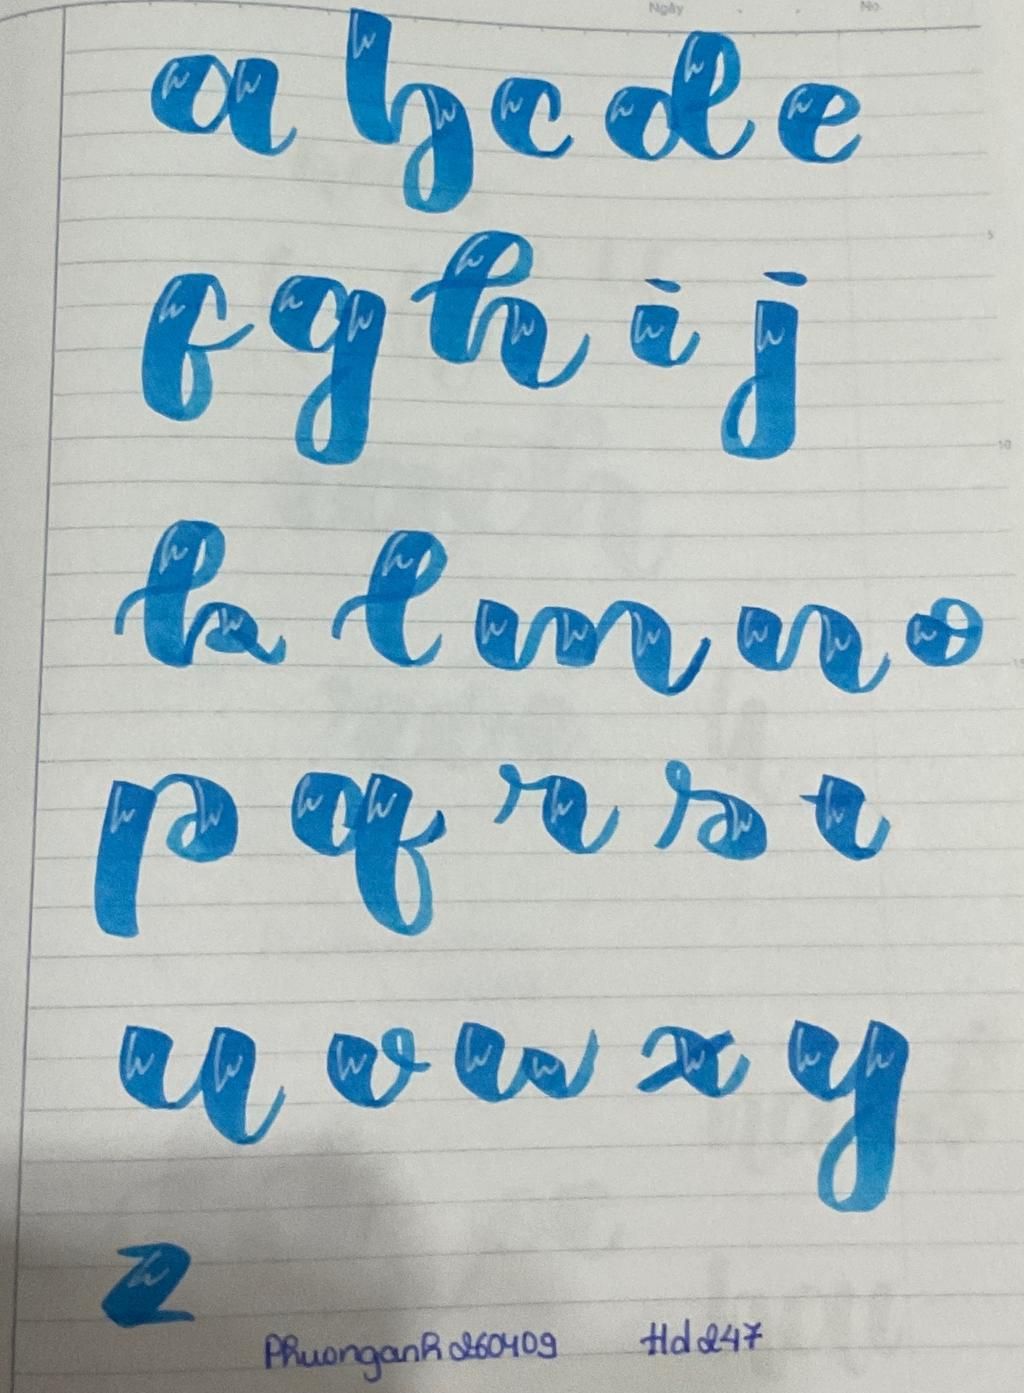 Ngày No
a b c d e
5
f g h i j
10
k l m n o
15
p q r s t
u v w x y
z
Phuonganh260409 Hd247